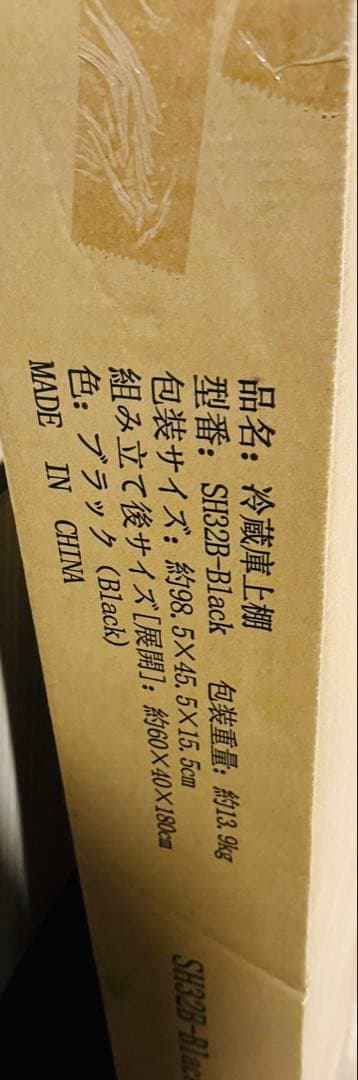 品名: 冷蔵庫上棚
型番: SH32B-Black 包装重量: 約13.9kg
包装サイズ: 約98.5×45.5×15.5cm
組み立て後サイズ[展開]: 約60×40×180cm
色: ブラック(Black)
MADE IN CHINA
SH32B-Blac